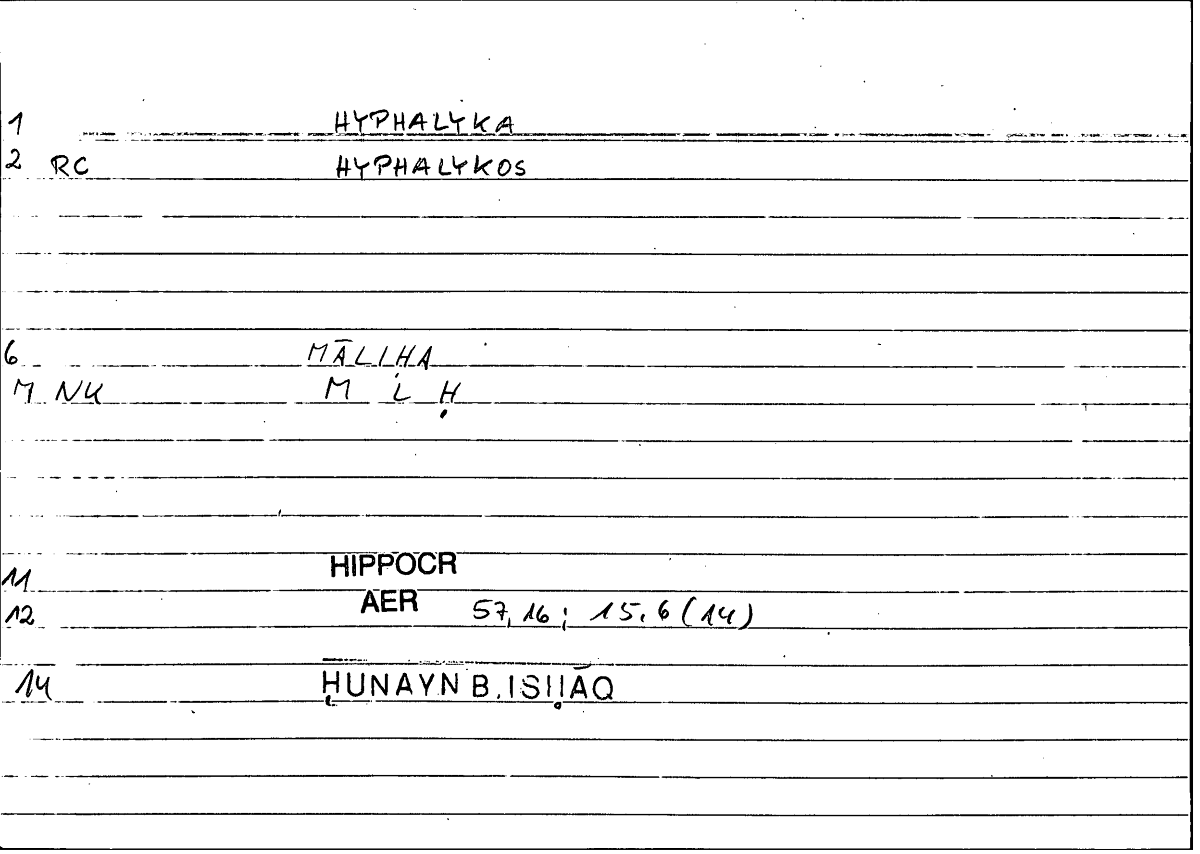 1 HYPHALYKA
2 RC HYPHALYKOS
6 MĀLIHA
M NK M L Ḥ
11 HIPPOCR
12 AER 57,16; 15,6 (14)
14 ḤUNAYN B. ISḤĀQ